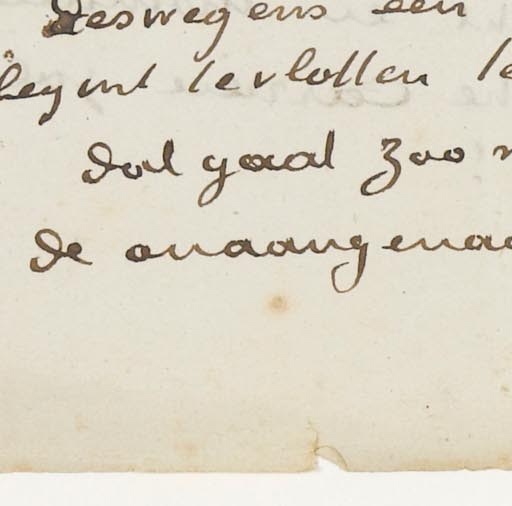 deswegens een
begint te vlotten te
dat gaat zoo
de onaangenaa